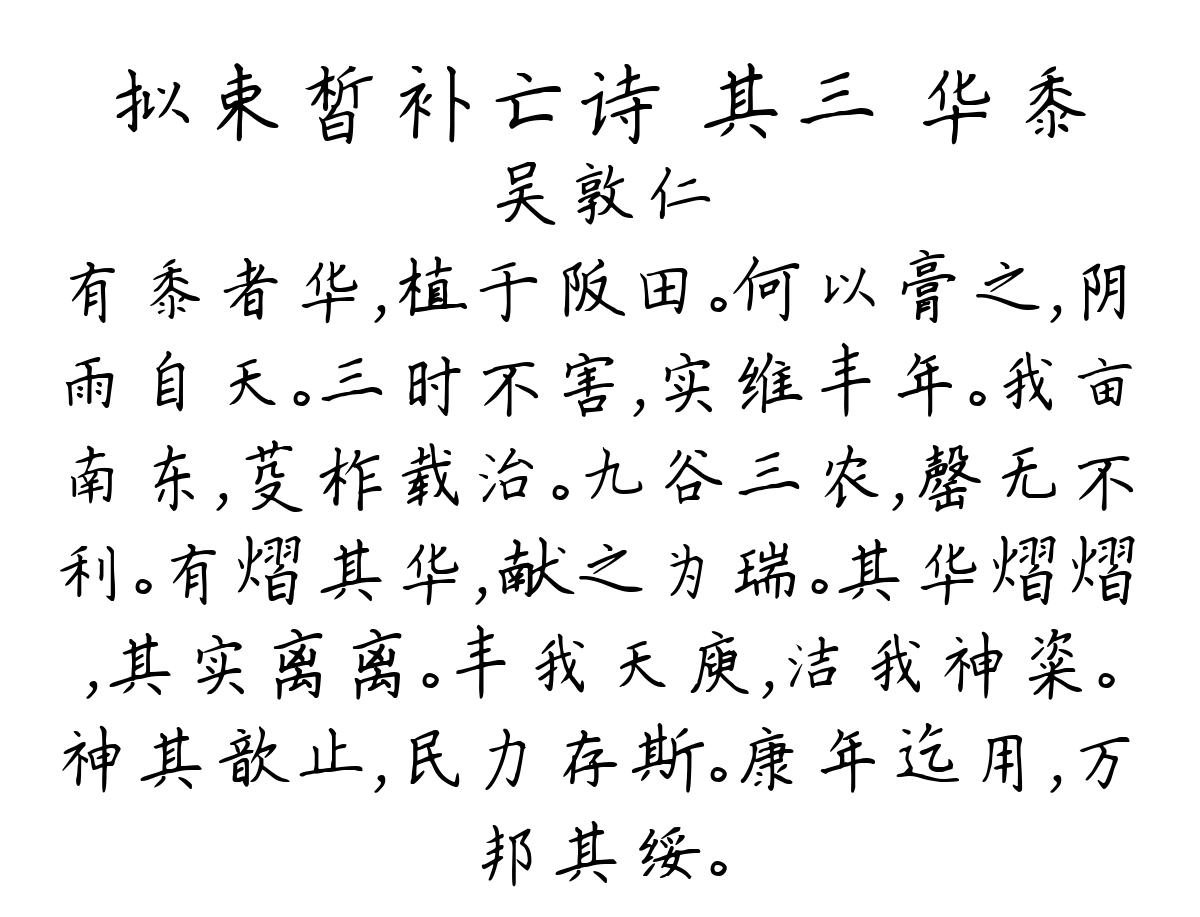 拟束皙补亡诗 其三 华黍
吴敦仁
有黍者华,植于阪田。何以膏之,阴
雨自天。三时不害,实维丰年。我亩
南东,芟柞载治。九谷三农,罄无不
利。有熠其华,献之为瑞。其华熠熠
,其实离离。丰我天庾,洁我神粢。
神其歆止,民力存斯。康年迄用,万
邦其绥。